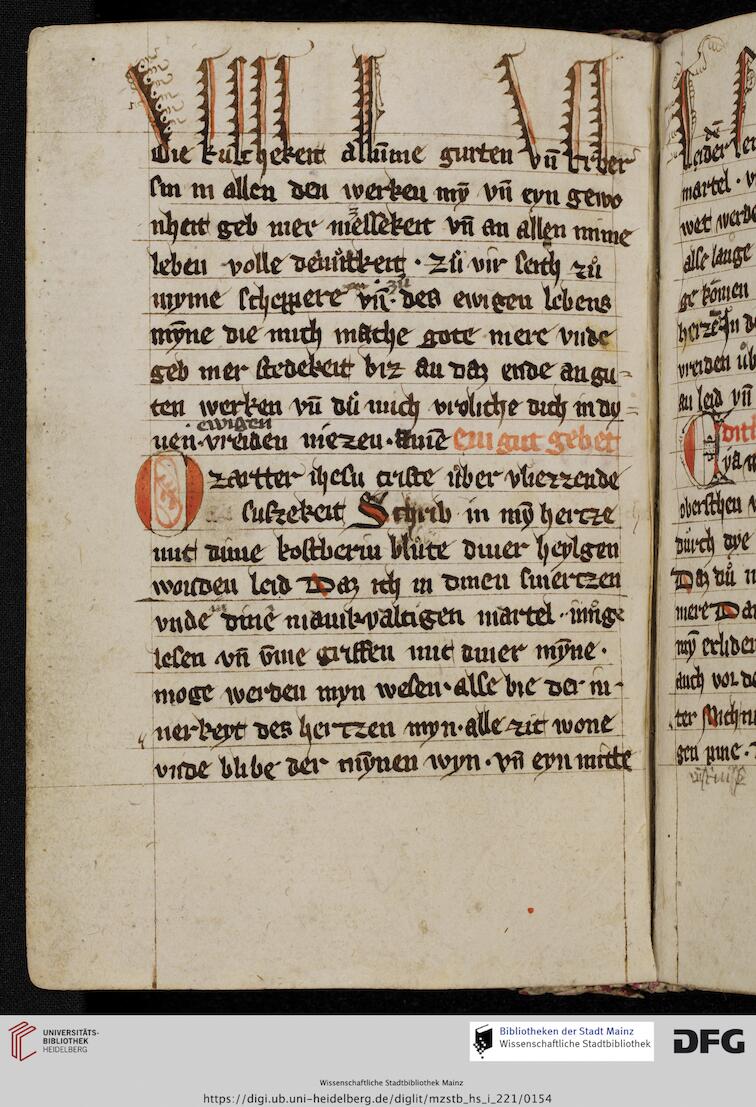 Die kuscheheit alumme gurten vñ tr ber
sin in allen den werken mÿ vñ eyn gewo
nheit geb mer messekeit vñ an allen mime
leben volle demutkeit · zů vir leith zů
myme scheppere vñ · zů des ewigen lebens
mÿne die mich mache gote mere vnde
geb mer stedekeit biz an daz ende an gu=
ten werken vñ dů mich vroliche dich in dy=
ewigen
nen · vreiden niezen · amē ein gut gebett
O zartter ihesu criste ůber vliezzende
suszekeit Schrib in mÿ hertze
mit dime kostberin blůte diner heylgen
wonden leid Daz ich in dinen smertzen
vnde dinē manikvaltigen martel · můge
lesen vñ vme griffen mit diner mÿne ·
moge werden myn wesen · alse bie der in-
nerkeyt des hertzen myn · alle zit wone
vnde blibe der mÿnen wyn · vñ eyn mitte
martel ·
alse lange
ge komen
vreiden ůb
an leid vñ
oberschen
durch dye
Daz dů
mere Da
auch vor de
UNIVERSITÄTS-
BIBLIOTHEK
HEIDELBERG
Bibliotheken der Stadt Mainz
Wissenschaftliche Stadtbibliothek
DFG
Wissenschaftliche Stadtbibliothek Mainz
https://digi.ub.uni-heidelberg.de/diglit/mzstb_hs_i_221/0154